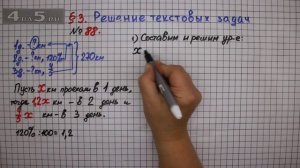 4 5.ru
§3. Решение текстовых задач
№ 88.
1д - ? км
2д - ? км, 120%
3д - ? км,
270 км
Пусть x км проехали в 1 день,
тогда 1,2x км - в 2 день и
x км - в 3 день.
120% : 100 = 1,2
1) Составим и решим ур-е:
x